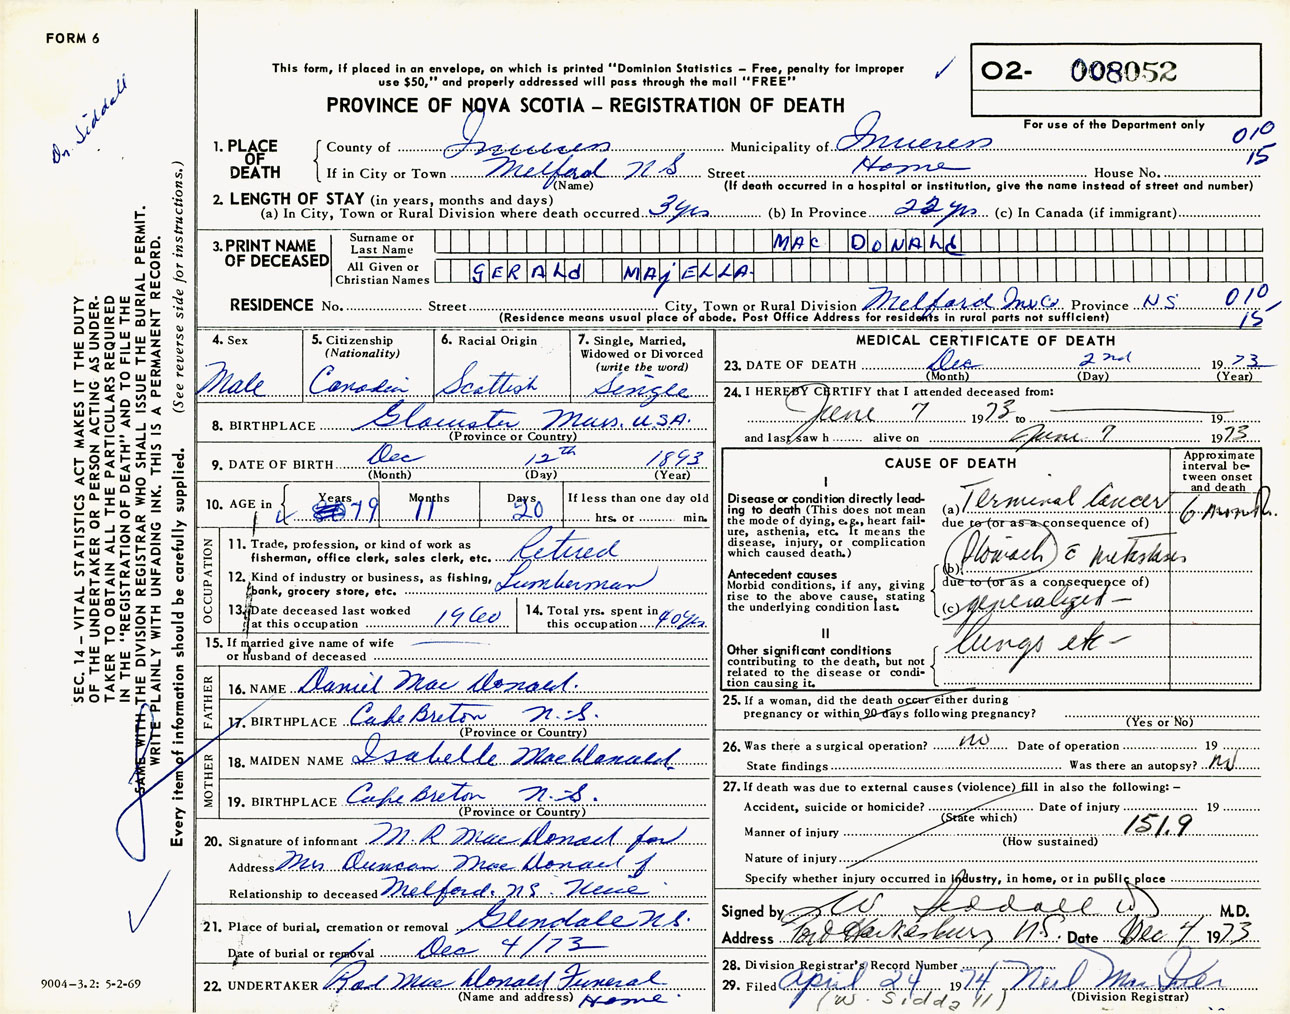 FORM 6
Dr. Siddall
This form, if placed in an envelope, on which is printed "Dominion Statistics – Free, penalty for improper
use $50," and properly addressed will pass through the mail "FREE"
PROVINCE OF NOVA SCOTIA – REGISTRATION OF DEATH
O2- 008052
For use of the Department only
010
15
1. PLACE OF DEATH
County of Inverness Municipality of Inverness
If in City or Town Melford N S Street Home House No.
(Name) (If death occurred in a hospital or institution, give the name instead of street and number)
2. LENGTH OF STAY (in years, months and days)
(a) In City, Town or Rural Division where death occurred 3 yrs (b) In Province yrs (c) In Canada (if immigrant)
3. PRINT NAME OF DECEASED
Surname or Last Name MAC DONALd
All Given or Christian Names GERALd MAjELLA
RESIDENCE No. Street City, Town or Rural Division Melford Inv Co Province NS 010
(Residence means usual place of abode. Post Office Address for residents in rural parts not sufficient) 15
4. Sex Male
5. Citizenship (Nationality) Canadian
6. Racial Origin Scottish
7. Single, Married, Widowed or Divorced (write the word) Single
8. BIRTHPLACE Gloucester Mass. USA.
(Province or Country)
9. DATE OF BIRTH Dec 12th 1893
(Month) (Day) (Year)
10. AGE in Years 79 Months 11 Days 20 If less than one day old
hrs. or min.
OCCUPATION
11. Trade, profession, or kind of work as
fisherman, office clerk, sales clerk, etc. Retired
12. Kind of industry or business, as fishing,
bank, grocery store, etc. Lumberman
13. Date deceased last worked
at this occupation 1960
14. Total yrs. spent in
this occupation 40 yrs.
15. If married give name of wife
or husband of deceased
FATHER
16. NAME Daniel Mac Donald.
17. BIRTHPLACE Cape Breton N.S.
(Province or Country)
MOTHER
18. MAIDEN NAME Isabelle MacDonald.
19. BIRTHPLACE Cape Breton N.S.
(Province or Country)
20. Signature of informant M. R Mac Donald for
Address Mrs Duncan Mac Donald
Relationship to deceased Melford. NS. Niece
21. Place of burial, cremation or removal Glendale N.S.
Date of burial or removal Dec 4/73
22. UNDERTAKER Rod Mac Donald Funeral
(Name and address) Home.
MEDICAL CERTIFICATE OF DEATH
23. DATE OF DEATH Dec 2nd 1973
(Month) (Day) (Year)
24. I HEREBY CERTIFY that I attended deceased from:
June 7 1973 to 19
and last saw h alive on June 7 1973
CAUSE OF DEATH
Approximate interval between onset and death
I
Disease or condition directly lead-
ing to death (This does not mean
the mode of dying, e.g., heart fail-
ure, asthenia, etc. It means the
disease, injury, or complication
which caused death.)
(a) Terminal Cancer 6 months.
due to (or as a consequence of)
Antecedent causes
Morbid conditions, if any, giving
rise to the above cause, stating
the underlying condition last.
(b) Stomach c metastases
due to (or as a consequence of)
(c) generalized –
II
Other significant conditions
contributing to the death, but not
related to the disease or condi-
tion causing it.
lungs etc –
25. If a woman, did the death occur either during
pregnancy or within 90 days following pregnancy?
(Yes or No)
26. Was there a surgical operation? no Date of operation 19
State findings Was there an autopsy? no
27. If death was due to external causes (violence) fill in also the following: –
Accident, suicide or homicide? Date of injury 19
(State which)
Manner of injury 151.9
(How sustained)
Nature of injury
Specify whether injury occurred in industry, in home, or in public place
Signed by W Siddall M.D.
Address Port Hawkesbury N.S. Date Dec 4 1973
28. Division Registrar's Record Number
29. Filed April 24 1974 Neil
(W. Siddall) (Division Registrar)
SEC. 14 – VITAL STATISTICS ACT MAKES IT THE DUTY
OF THE UNDERTAKER OR PERSON ACTING AS UNDER-
TAKER TO OBTAIN ALL THE PARTICULARS REQUIRED
IN THE "REGISTRATION OF DEATH" AND TO FILE THE
SAME WITH THE DIVISION REGISTRAR WHO SHALL ISSUE THE BURIAL PERMIT.
WRITE PLAINLY WITH UNFADING INK. THIS IS A PERMANENT RECORD.
Every item of information should be carefully supplied. (See reverse side for instructions.)
9004-3.2: 5-2-69